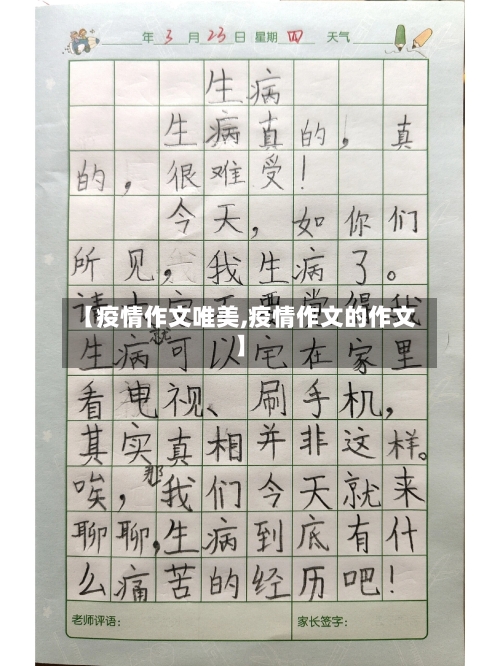 年3月23日 星期 四 天气
生病
生病真的，真
的，很难受！
今天，如你们
所见，我生病了。
【疫情作文唯美,疫情作文的作文
】
生病就可以宅在家里
看电视、刷手机，
其实真相并非这样。
唉，那我们今天就来
聊聊，生病到底有什
么痛苦的经历吧！
老师评语： 家长签字：